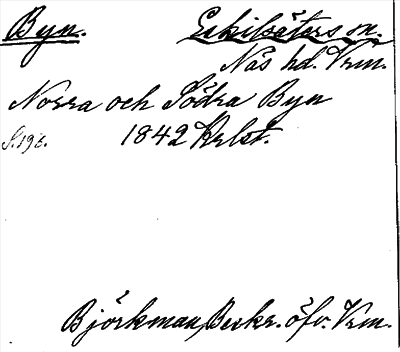 Byn. Eskilsäters sn.
Näs hd. Vrm.
Norra och Södra Byn
S. 196. 1842 Krlst.
Björkman, Beskr. öfv. Vrm.